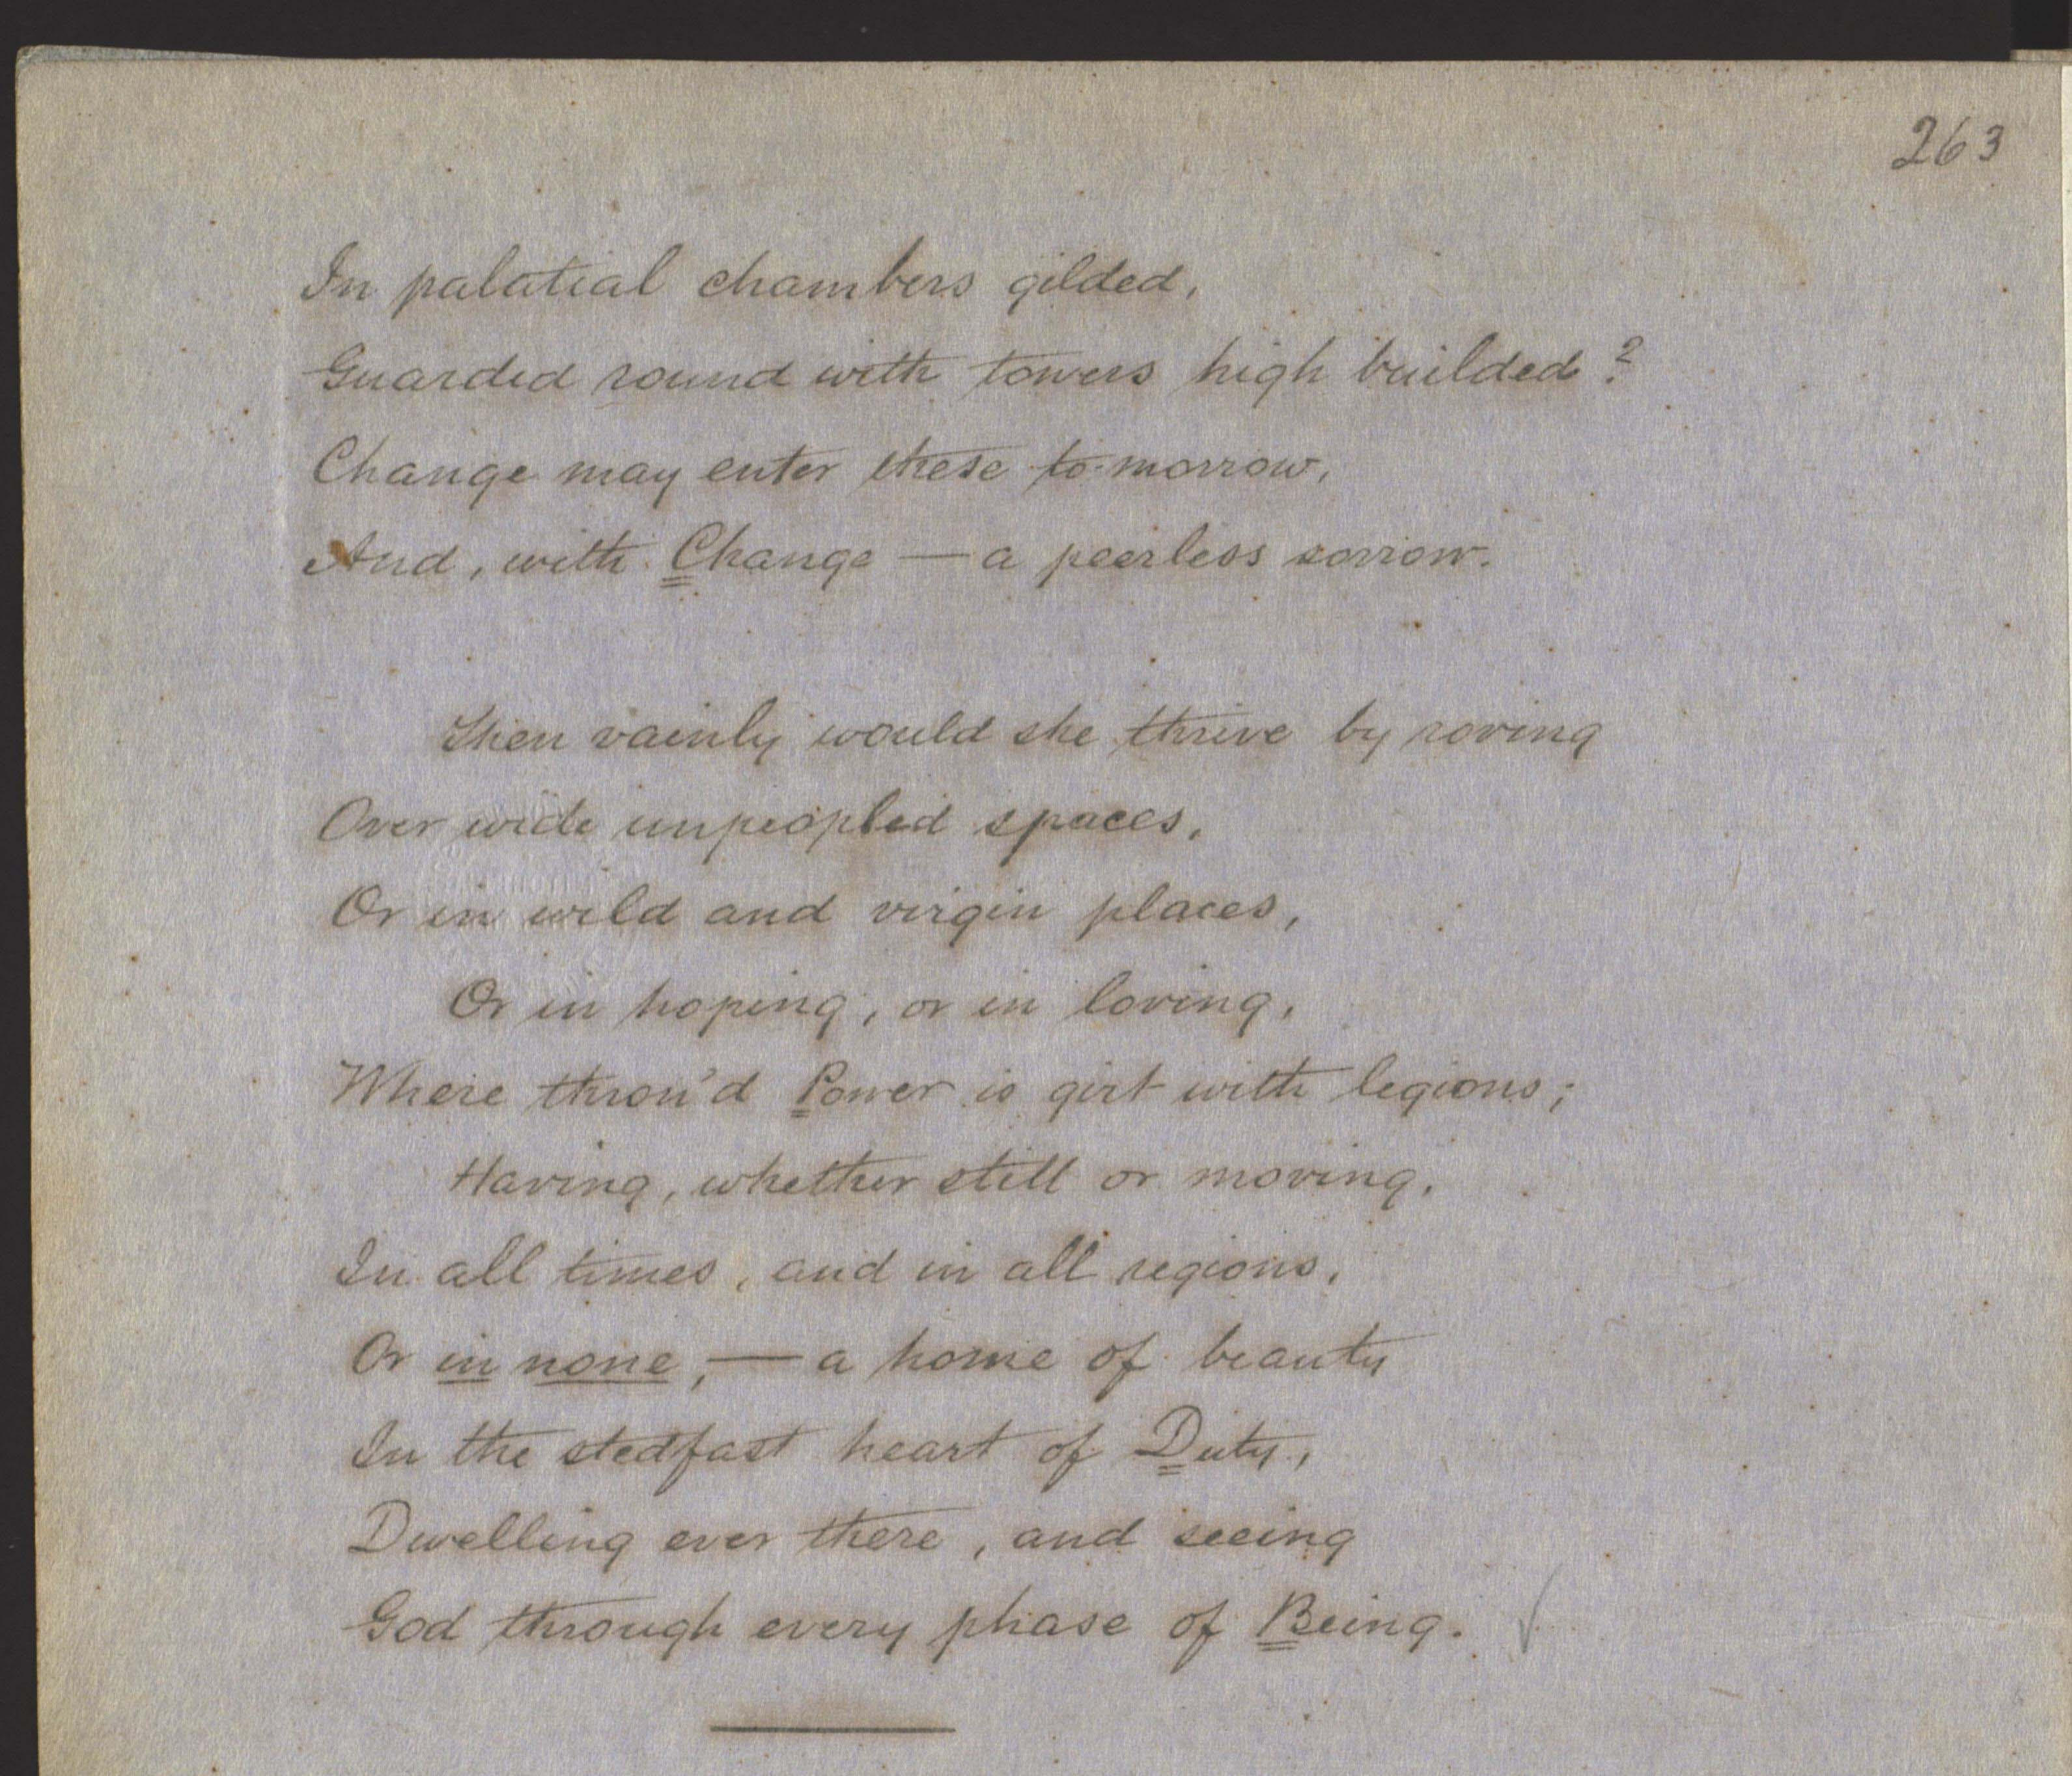 263
In palatial chambers gilded,
Guarded round with towers high builded?
Change may enter these to-morrow,
And, with Change — a peerless sorrow.
Then vainly would she thrive by roving
Over wide unpeopled spaces,
Or in wild and virgin places,
Or in hoping, or in loving,
Where thron'd Power is girt with legions;
Having, whether still or moving,
In all times, and in all regions,
Or in none, — a home of beauty
In the stedfast heart of Duty,
Dwelling ever there, and seeing
God through every phase of Being.